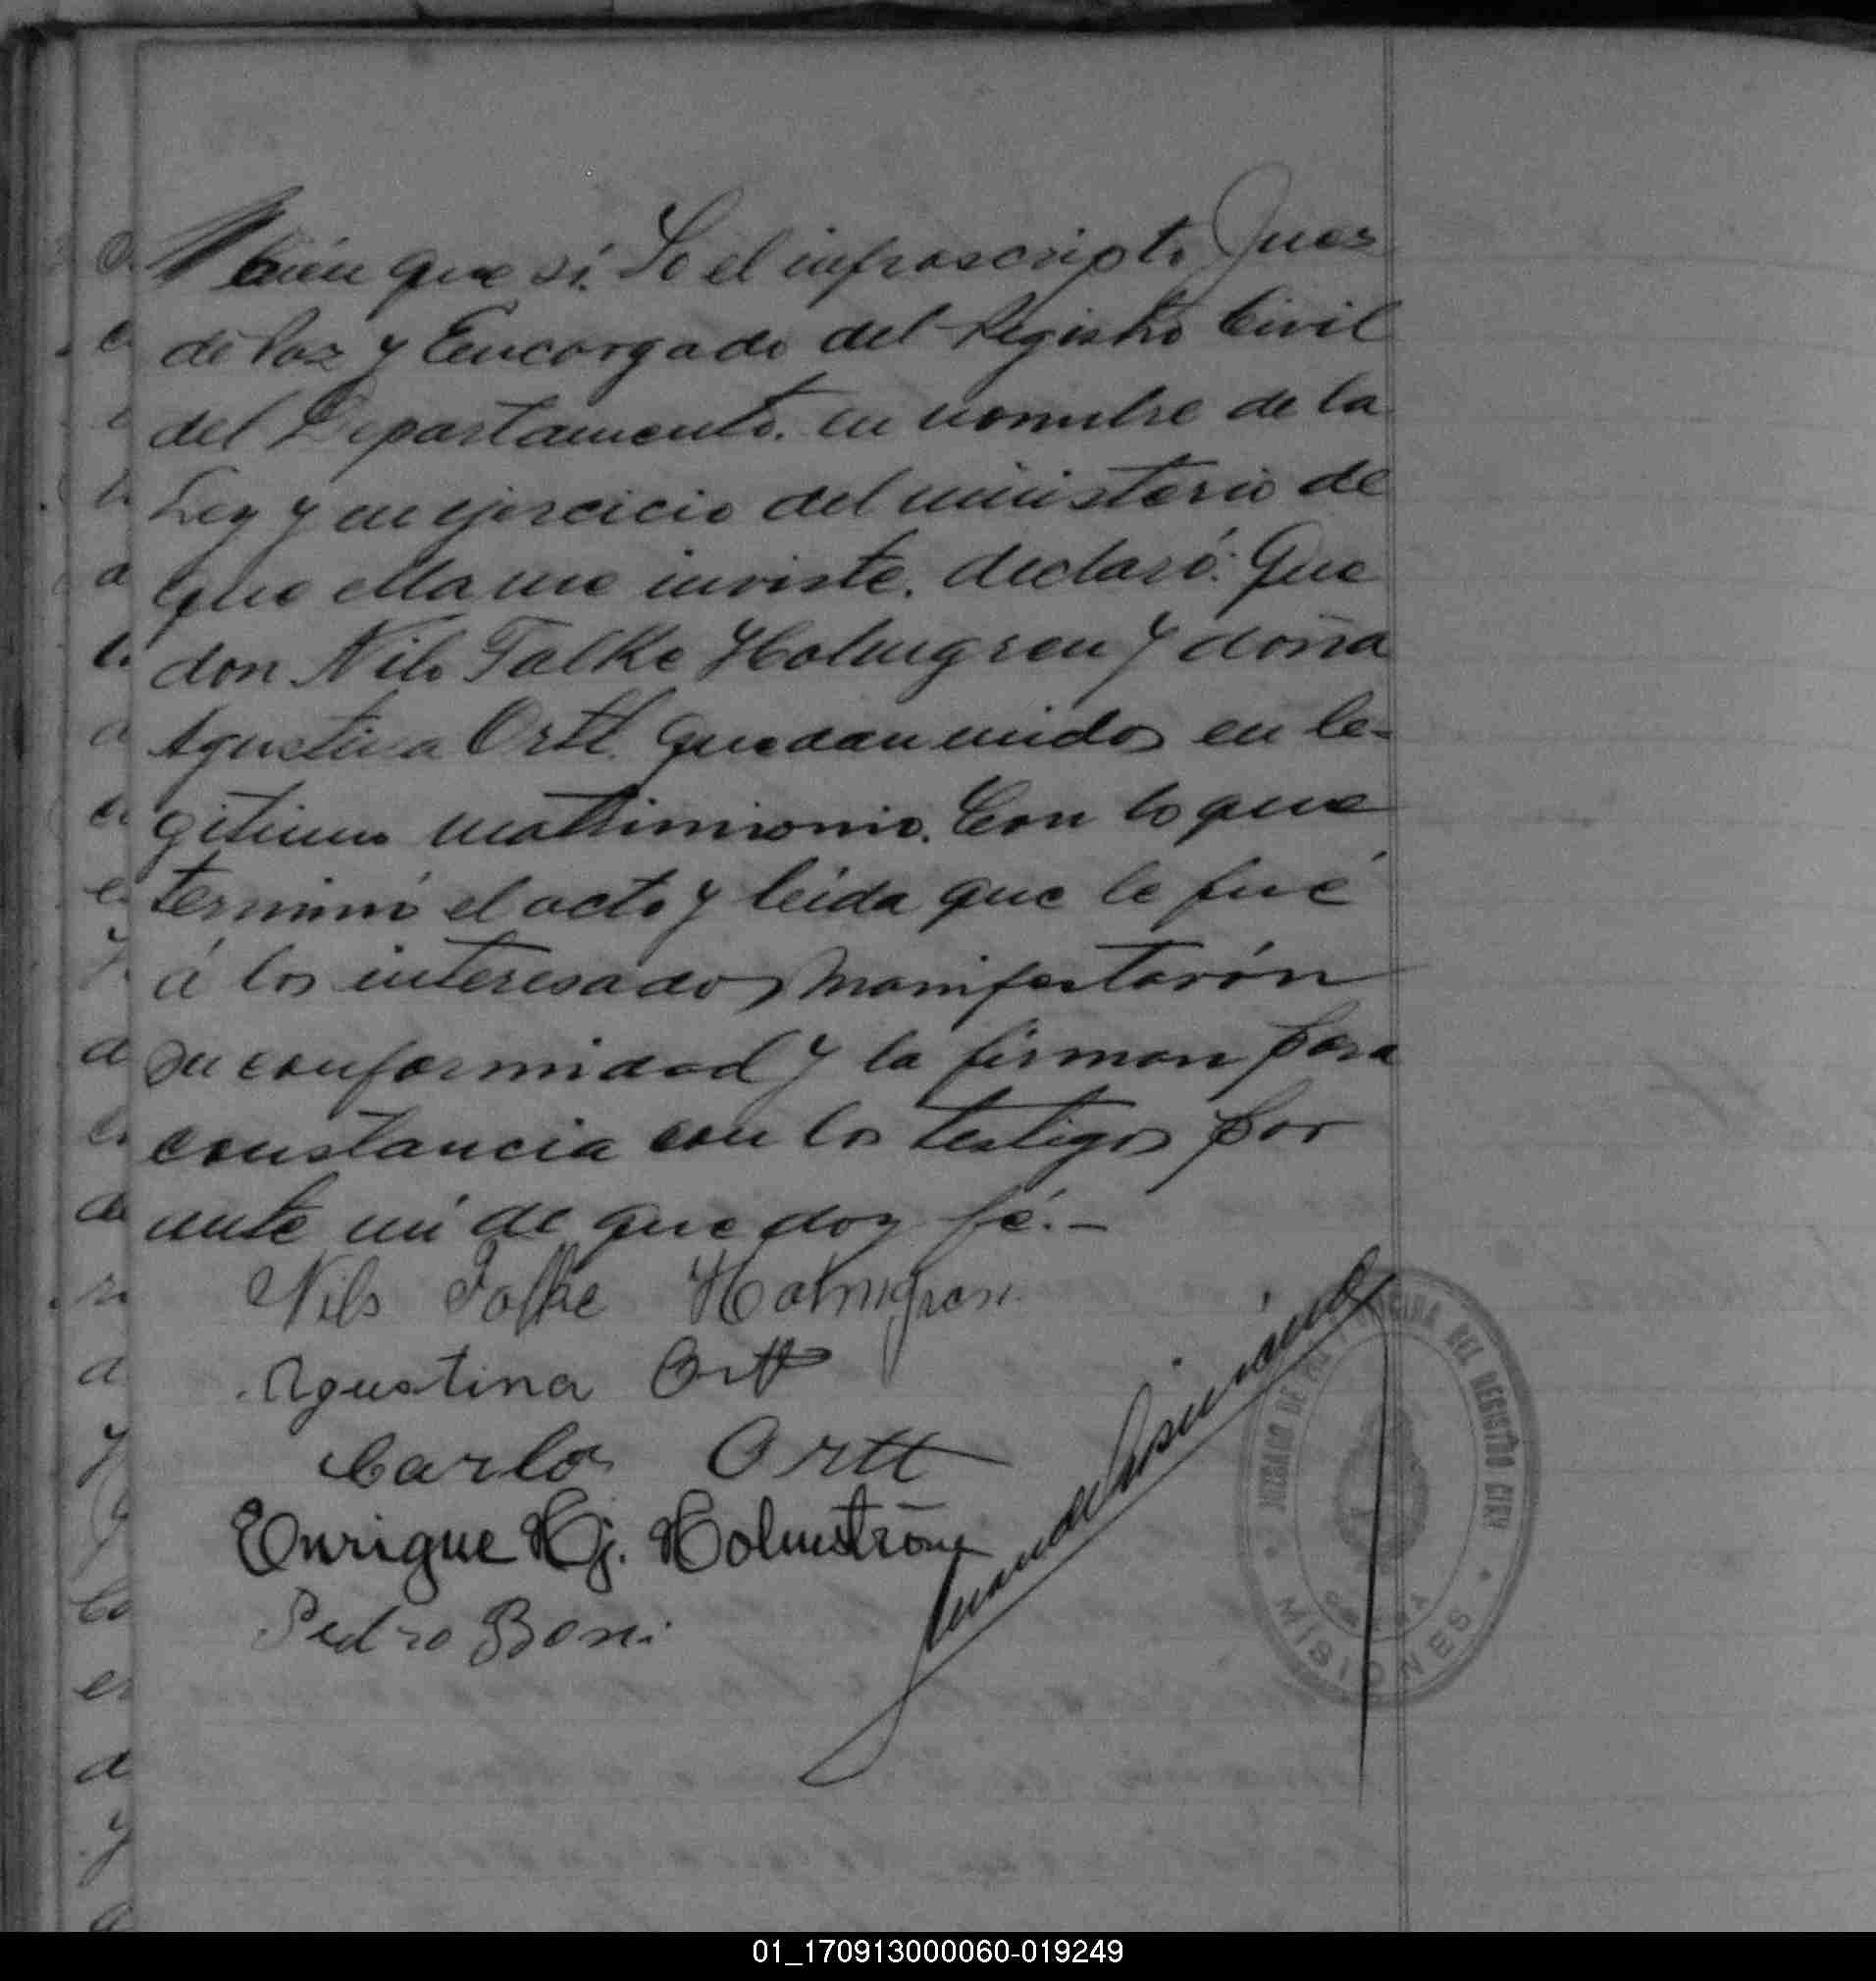 bién que sí. Yo el infrascripto Juez
de Paz y Encargado del Registro Civil
del Departamento. en nombre de la
Ley y en ejercicio del ministerio de
que ella me inviste. declaró: Que
don Nils Falke Holmgren y doña
Agustina Ortt. quedan unidos en le-
gitimo matrimionio. Con lo que
terminó el acto y leida que le fué
á los interesados manifestarón
su conformidad y la firman para
constancia con los testigos por
ante mi de que doy fé. -
Nils Folke Holmgren
Agustina Ortt
Carlos Ortt
Enrique Hj. Holmström
Pedro Boni
JUZGADO DE PAZ Y OFICINA DEL REGISTRO CIVIL
MISIONES
01_170913000060-019249